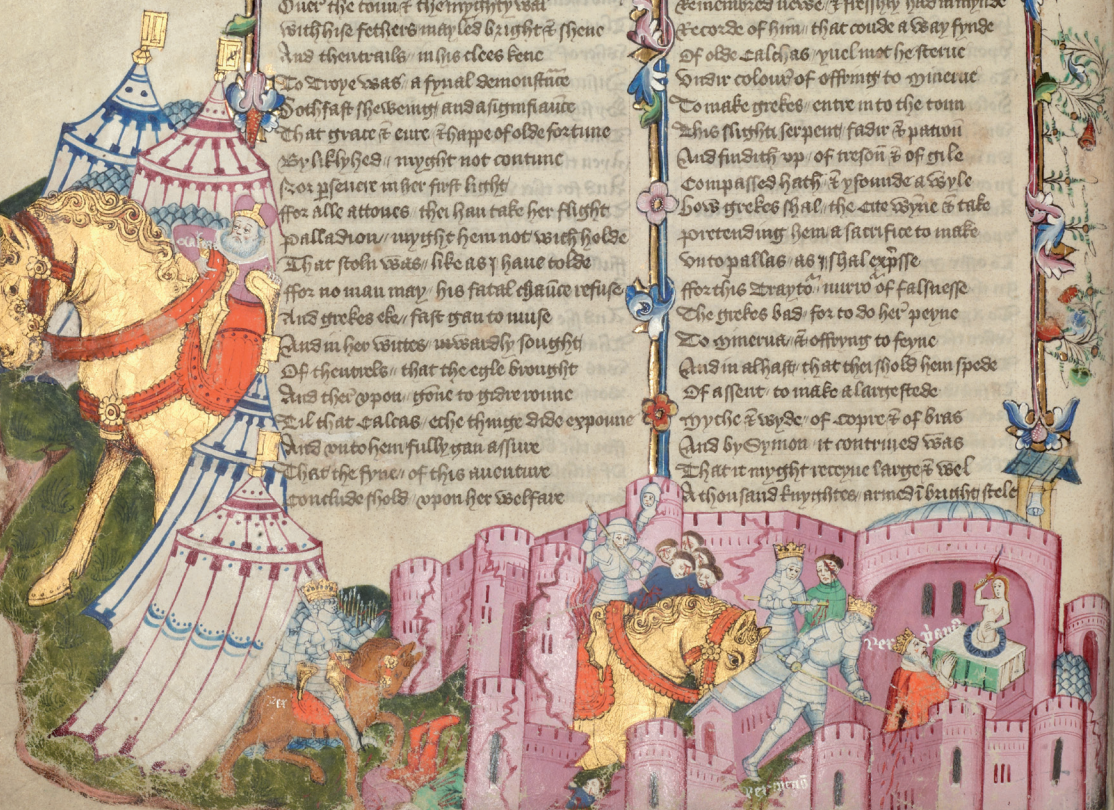 Over the toun & the myghty wal
with hise fethers mayled bright & shene
And thentrails in his clees kene
To Troye was a fynal demonstance
Sothfast sheweing and a signifiance
That grace & eure & happe of olde fortune
By liklyhed myght not contune
Nor perseuere in her first light
ffor alle attones thei han take her flight
Palladion myght hem not with holde
That stoln was like as I haue tolde
ffor no man may his fatal chaunce refuse
And grekes eke fast gan to muse
And in her wittes inwardly sought
Of thentrels that the egle brought
And ther vpon gone to gidre roune
Til that Calcas eche thinge dide expoune
And vnto hem fully gan assure
That the fyne of this auenture
Conclude shold vpon her welfare
Remembred newe & fresshly had in mynde
Recorde of him that coude a way fynde
Of olde Calchas yuel mot he sterue
Vndir colour of offring to minerue
To make grekes entre in to the toun
This slighti serpent fadir & patron
And findith vp of treson & of gile
Compassed hath & yfounde a wyle
How grekes shal the Cite wyne & take
pretending hem a sacrifice to make
vnto pallas as I shal expresse
ffor this Traytour mirrour of falsnesse
The grekes bad for to do her peyne
To minerua an offryng to feyne
And in al hast that thei shold hem spede
Of assent to make a large stede
myche & wyde of copre & of bras
And by Symon it contriued was
That it myght receyue large & wel
A thousand knyghtes armed in bright stele
calcas